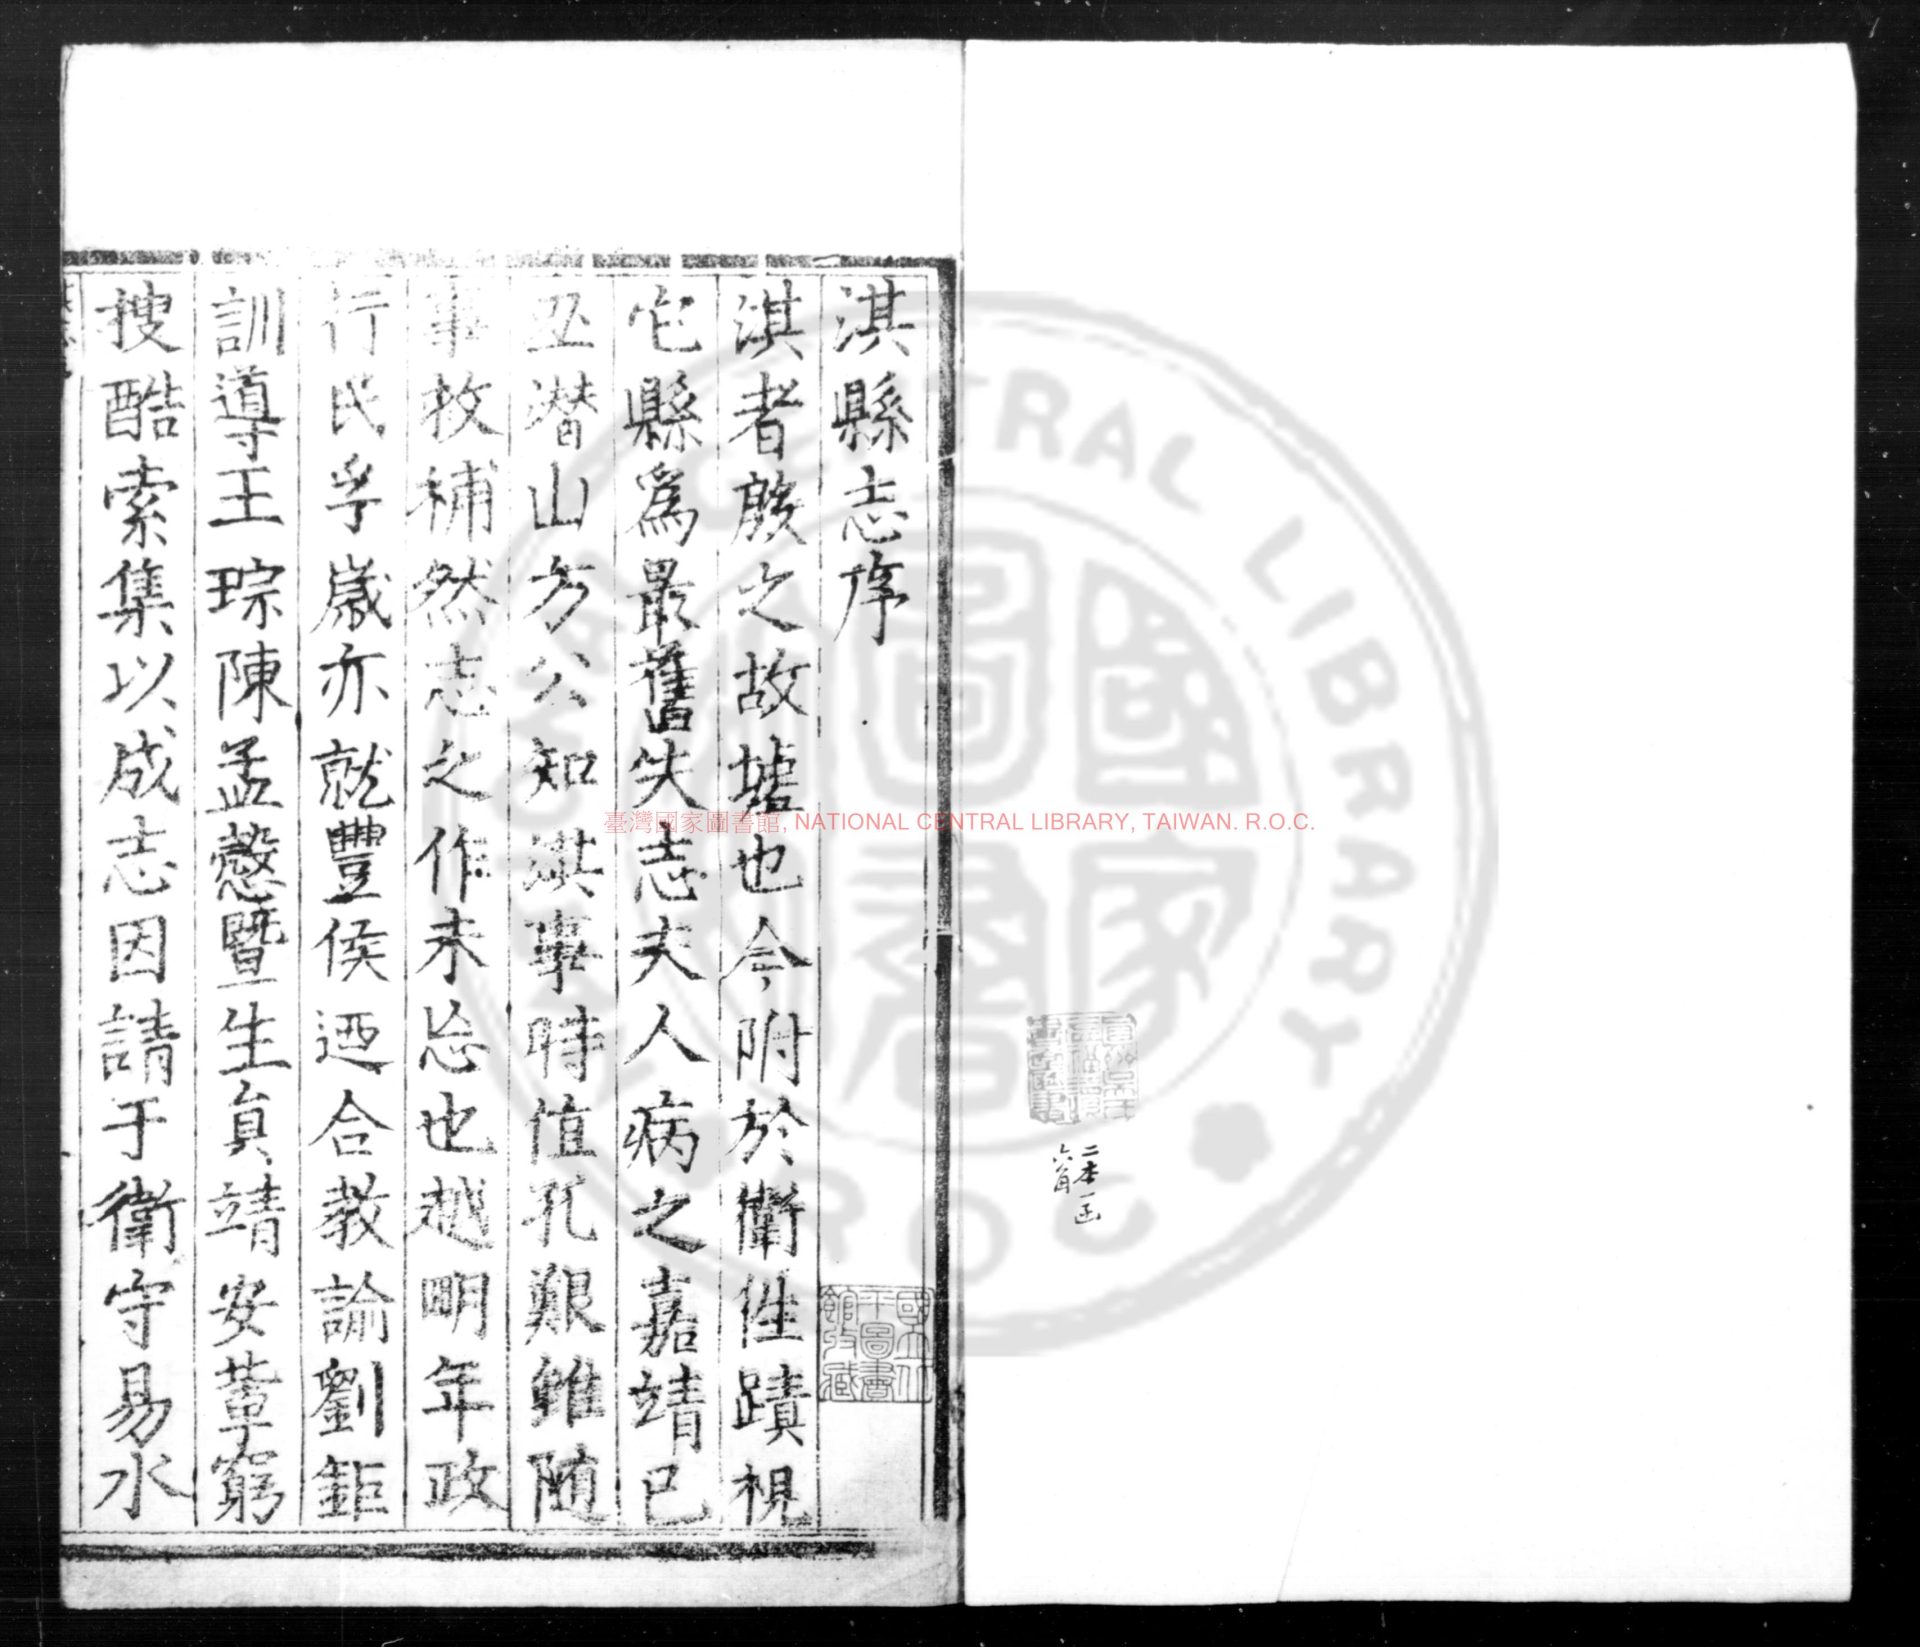 淇縣志序
淇者殷之故墟也今附於衛徃蹟視
它縣爲最舊失志夫人病之嘉靖已
丑濳山方公知淇事時值孔艱雖随
事救補然志之作未忘也越明年政
行民孚嵗亦就豐侯迺合教諭劉鉅
訓導王琮陳孟慤暨生員靖安葦窮
搜酷索集以成志因請于衛守易水
臺灣國家圖書館, NATIONAL CENTRAL LIBRARY, TAIWAN. R.O.C.
國立北
平圖書
館收藏
二本一函